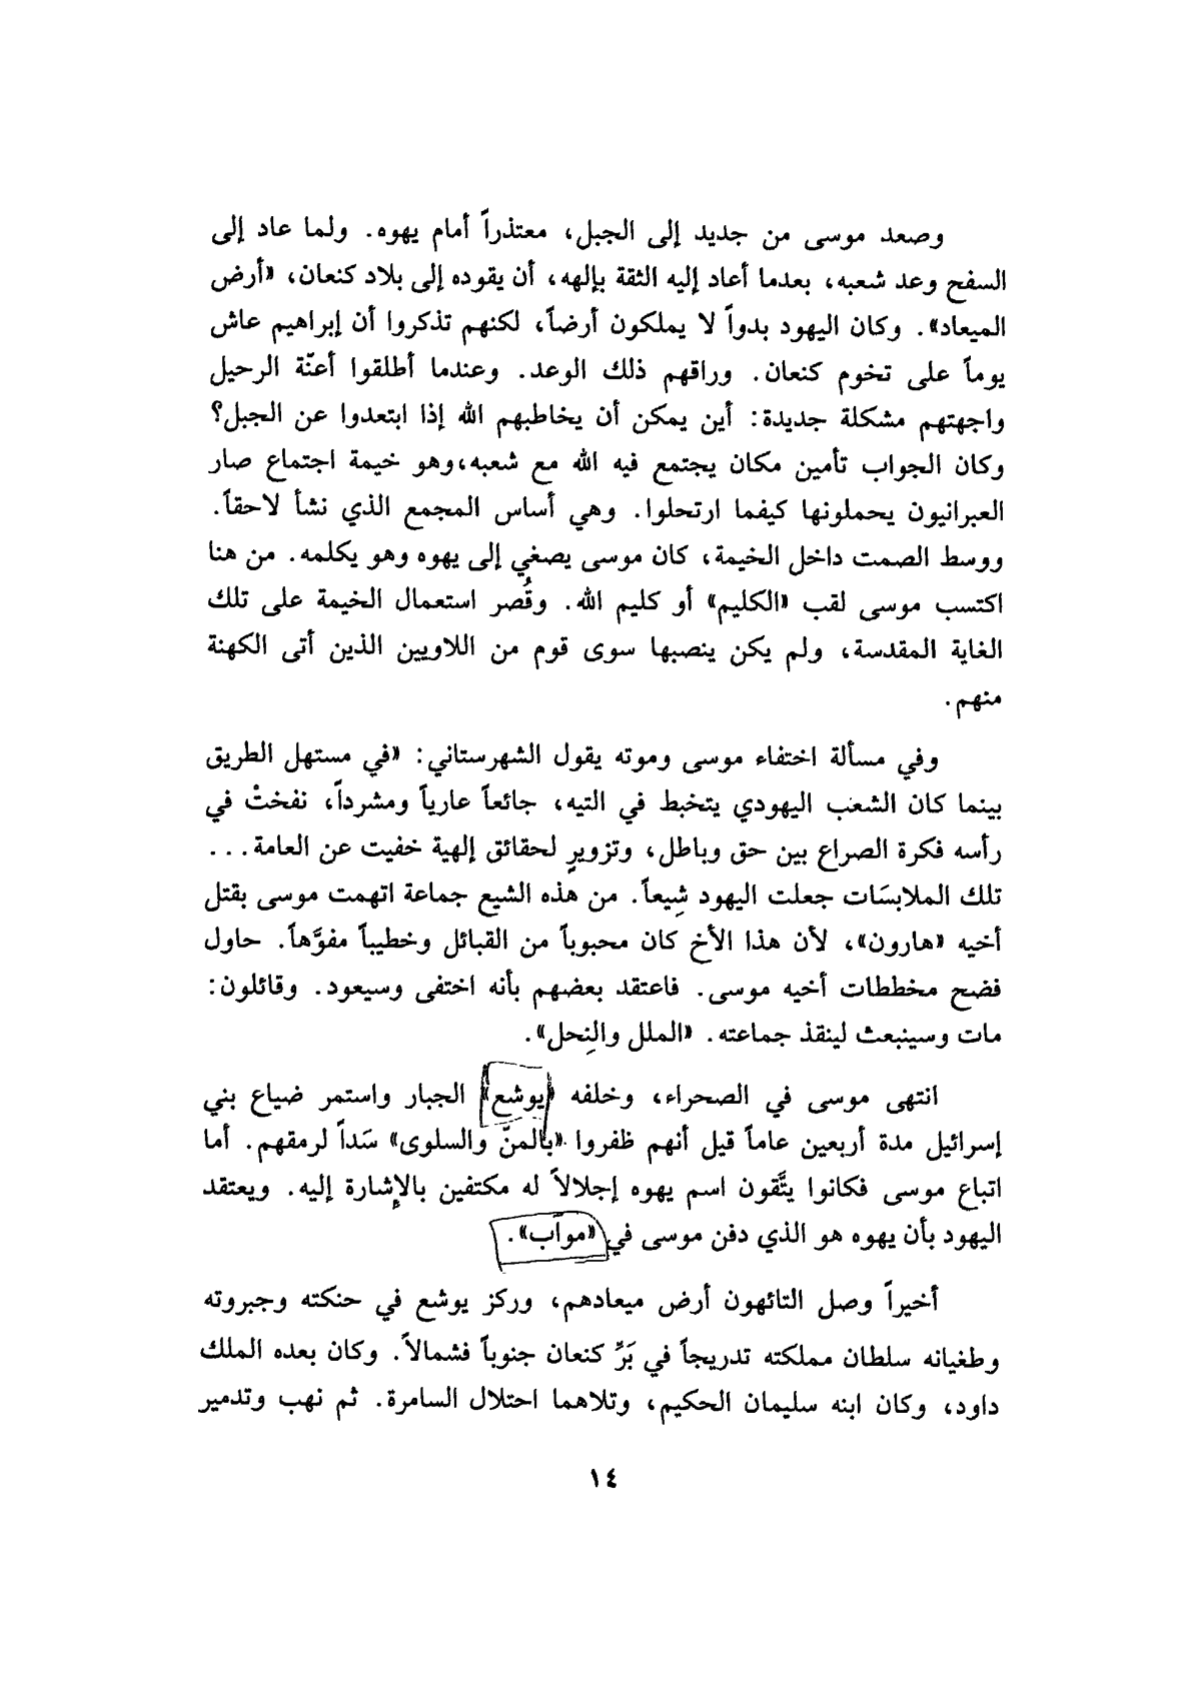 وصعد موسى من جديد إلى الجبل، معتذراً أمام يهوه. ولما عاد إلى
السفح وعد شعبه، بعدما أعاد إليه الثقة بإلهه، أن يقوده إلى بلاد كنعان، «أرض
الميعاد». وكان اليهود بدواً لا يملكون أرضاً، لكنهم تذكروا أن إبراهيم عاش
يوماً على تخوم كنعان. وراقهم ذلك الوعد. وعندما أطلقوا أعنّة الرحيل
واجهتهم مشكلة جديدة: أين يمكن أن يخاطبهم الله إذا ابتعدوا عن الجبل؟
وكان الجواب تأمين مكان يجتمع فيه الله مع شعبه،وهو خيمة اجتماع صار
العبرانيون يحملونها كيفما ارتحلوا. وهي أساس المجمع الذي نشأ لاحقاً.
ووسط الصمت داخل الخيمة، كان موسى يصغي إلى يهوه وهو يكلمه. من هنا
اكتسب موسى لقب «الكليم» أو كليم الله. وقُصر استعمال الخيمة على تلك
الغاية المقدسة، ولم يكن ينصبها سوى قوم من اللاويين الذين أتى الكهنة
منهم.
وفي مسألة اختفاء موسى وموته يقول الشهرستاني: «في مستهل الطريق
بينما كان الشعب اليهودي يتخبط في التيه، جائعاً عارياً ومشرداً، نفختْ في
رأسه فكرة الصراع بين حق وباطل، وتزويرٍ لحقائق إلهية خفيت عن العامة...
تلك الملابسَات جعلت اليهود شِيعاً. من هذه الشيع جماعة اتهمت موسى بقتل
أخيه «هارون»، لأن هذا الأخ كان محبوباً من القبائل وخطيباً مفوَّهاً. حاول
فضح مخططات أخيه موسى. فاعتقد بعضهم بأنه اختفى وسيعود. وقائلون:
مات وسينبعث لينقذ جماعته. «الملل والنِحل».
انتهى موسى في الصحراء، وخلفه «يوشع» الجبار واستمر ضياع بني
إسرائيل مدة أربعين عاماً قيل أنهم ظفروا «بالمنّ والسلوى» سَداً لرمقهم. أما
اتباع موسى فكانوا يتَّقون اسم يهوه إجلالاً له مكتفين بالإِشارة إليه. ويعتقد
اليهود بأن يهوه هو الذي دفن موسى في «موآب».
أخيراً وصل التائهون أرض ميعادهم، وركز يوشع في حنكته وجبروته
وطغيانه سلطان مملكته تدريجاً في بَرِّ كنعان جنوباً فشمالاً. وكان بعده الملك
داود، وكان ابنه سليمان الحكيم، وتلاهما احتلال السامرة. ثم نهب وتدمير
١٤